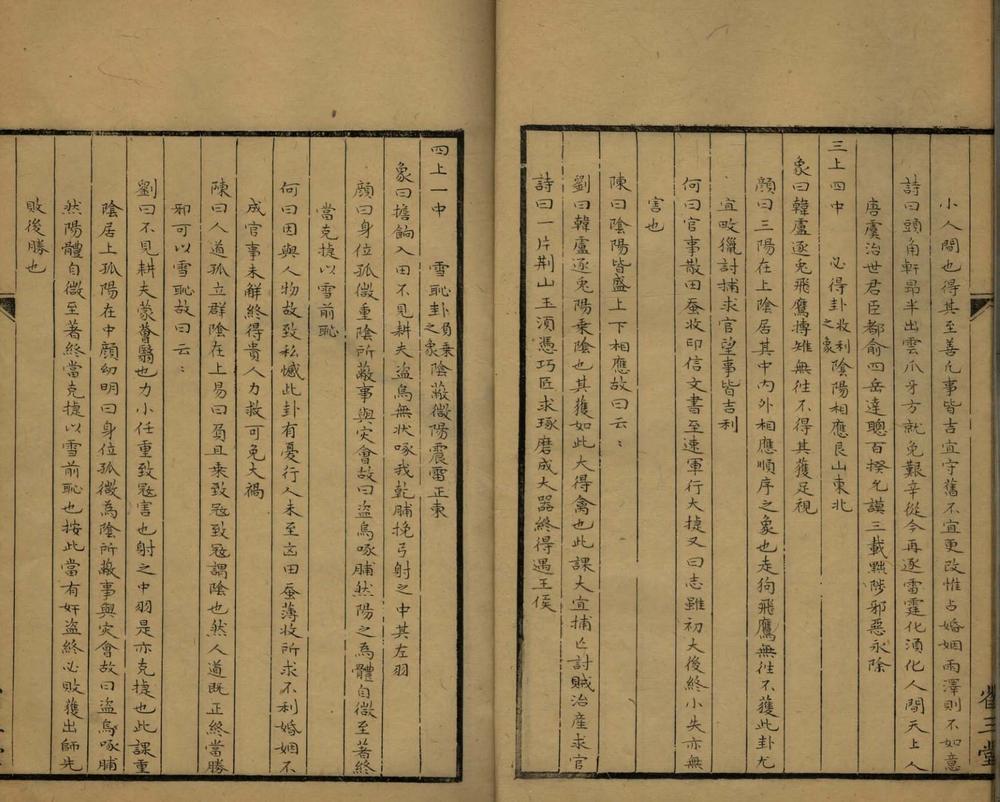 小人間也得其至善凡事皆吉宜守舊不宜更改惟占婚姻雨澤則不如意
詩曰頭角軒昂半出雲爪牙方就免艱辛從今再逐雷霆化湏化人間天上人
唐虞治世君臣都俞四岳達聰百揆允謨三載黜陟邪惡永除
三上四中　必得卦收利之象陰陽相應艮山東北
象曰韓盧逐兎飛鷹搏雉無徃不得其獲足視
顔曰三陽在上陰居其中內外相應順序之象也走狗飛鷹無徃不獲此卦尤
宜畋獵討捕求官望事皆吉利
何曰官事散田蚕收印信文書至速軍行大捷又曰志雖初大後終小失亦無
害也
陳曰陰陽皆盛上下相應故曰云：
劉曰韓盧逐兎陽乗陰也其獲如此大得禽也此課大宜捕亾討賊治産求官
詩曰一片荆山玉湏憑巧匠求琢磨成大器終得遇王侯
三堂
四上一中　雪恥卦負乗之象陰蔽微陽震雷正東
象曰擔餉入田不見耕夫盗烏無状啄我乾脯挽弓射之中其左羽
顔曰身位孤微重陰所蔽事與灾會故曰盗烏啄脯然陽之為體自微至著終
當克捷以雪前恥
何曰因與人物故致私憾此卦有憂行人未至凶田蚕薄收所求不利婚姻不
成官事未觧終得貴人力救可免大禍
陳曰人道孤立群陰在上易曰負且乗致冦致冦謂陰也然人道既正終當勝
邪可以雪恥故曰云：
劉曰不見耕夫蒙薈翳也力小任重致冦害也射之中羽是亦克捷也此課重
陰居上孤陽在中顔幼明曰身位孤微為陰所蔽事與灾會故曰盗烏啄脯
然陽體自微至著終當克捷以雪前恥也按此當有奸盗終必敗獲出師先
敗後勝也